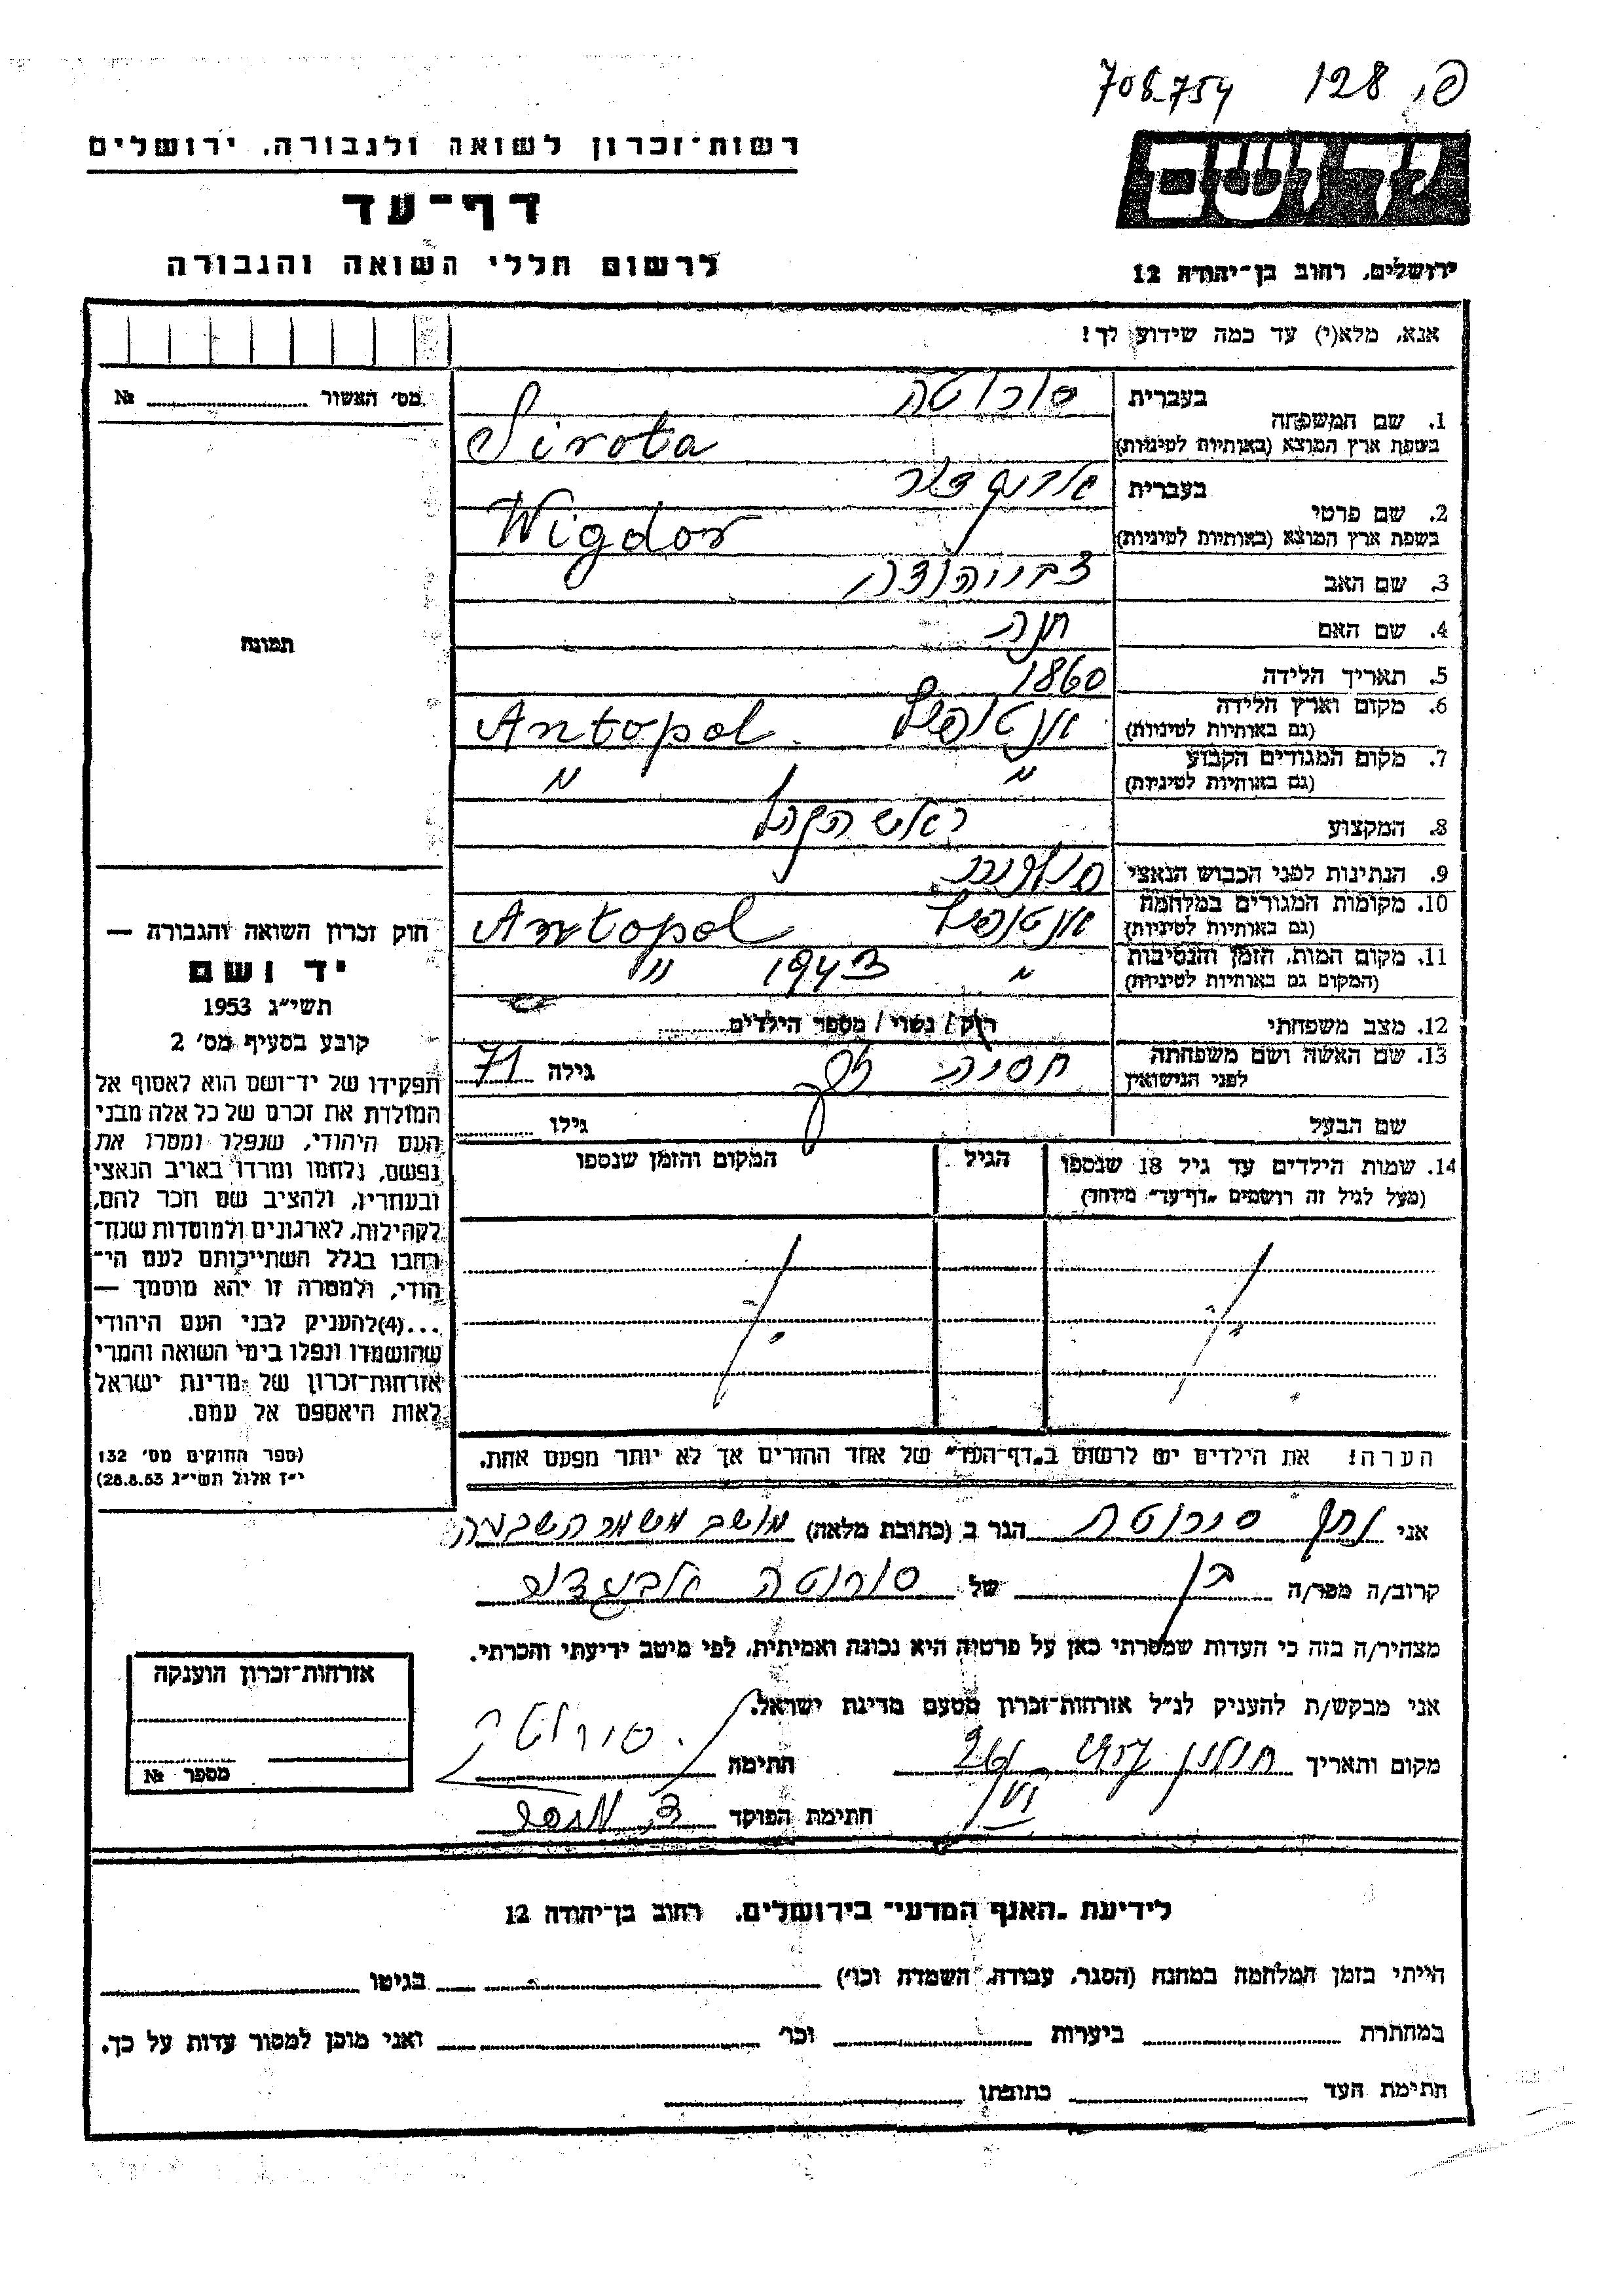 708-754 פ. 128
יד ושם
רשות־זכרון לשואה ולגבורה, ירושלים
דף־עד
לרשום חללי השואה והגבורה
ירושלים, רחוב בן־יהודה 12
אנא, מלא(י) עד כמה שידוע לך!
מס׳ האשור № 
1. שם המשפחה
בעברית סירוטה
בשפת ארץ המוצא (באותיות לטיניות) Sirota
2. שם פרטי
בעברית אביגדור
בשפת ארץ המוצא (באותיות לטיניות) Wigdor
3. שם האב
4. שם האם חנה
5. תאריך הלידה 1860
6. מקום וארץ הלידה
(גם באותיות לטיניות) אנטופול Antopol
7. מקום המגורים הקבוע
(גם באותיות לטיניות) " "
8. המקצוע ראש הקהל
9. הנתינות לפני הכבוש הנאצי פולנית
10. מקומות המגורים במלחמה
(גם באותיות לטיניות) אנטופול Antopol
11. מקום המות, הזמן והנסיבות
(המקום גם באותיות לטיניות) " 1943 "
12. מצב משפחתי רוק/ נשוי / מספר הילדים
13. שם האשה ושם משפחתה
לפני הנישואין חסיה גילה 71
שם הבעל גילו
14. שמות הילדים עד גיל 18 שנספו
(מעל לגיל זה רושמים „דף־עד" מיוחד)
הגיל
המקום והזמן שנספו
הערה: את הילדים יש לרשום ב„דף־העד" של אחד ההורים אך לא יותר מפעם אחת.
תמונה
חוק זכרון השואה והגבורה —
יד ושם
תשי״ג 1953
קובע בסעיף מס׳ 2
תפקידו של יד־ושם הוא לאסוף אל
המולדת את זכרם של כל אלה מבני
העם היהודי, שנפלו ומסרו את
נפשם, נלחמו ומרדו באויב הנאצי
ובעוזריו, ולהציב שם וזכר להם,
לקהילות, לארגונים ולמוסדות שנח־
רבו בגלל השתייכותם לעם הי־
הודי, ולמטרה זו יהא מוסמך —
...(4)להעניק לבני העם היהודי
שהושמדו ונפלו בימי השואה והמרי
אזרחות־זכרון של מדינת ישראל
לאות היאספם אל עמם.
(ספר החוקים מס׳ 132
י״ז אלול תשי״ג 28.8.53)
אני סירוטה הגר ב (כתובת מלאה) מושב משמר השבעה
קרוב/ה מפר/ה בן של סירוטה אביגדור
מצהיר/ה בזה כי העדות שמסרתי כאן על פרטיה היא נכונה ואמיתית, לפי מיטב ידיעתי והכרתי.
אני מבקש/ת להעניק לנ״ל אזרחות־זכרון מטעם מדינת ישראל.
מקום ותאריך חולון חתימה סירוטה
חתימת הפוקד
אזרחות־זכרון הוענקה
מספר №
לידיעת „האגף המדעי" בירושלים, רחוב בן־יהודה 12
הייתי בזמן המלחמה במחנה (הסגר, עבודה, השמדה וכו׳) בגיטו
במחתרת ביערות וכו׳ ואני מוכן למסור עדות על כך.
חתימת העד כתובתו